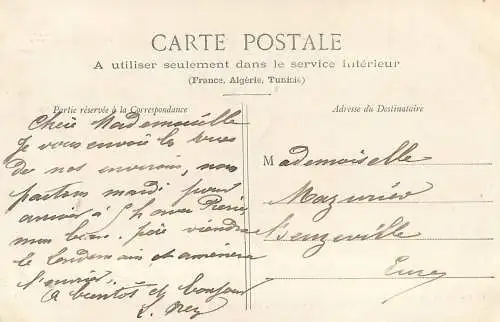 CARTE POSTALE
A utiliser seulement dans le service intérieur
(France, Algérie, Tunisie)
Partie réservée à la Correspondance
Adresse du Destinataire
Chère Mademoiselle
Je vous envoie la vues
de nos environs, nous
partons mardi pour
arriver à 5 h avec
mon viendra
le lendemain et amènera
A bientôt et bonjour
L. Rey
Mademoiselle
Eure